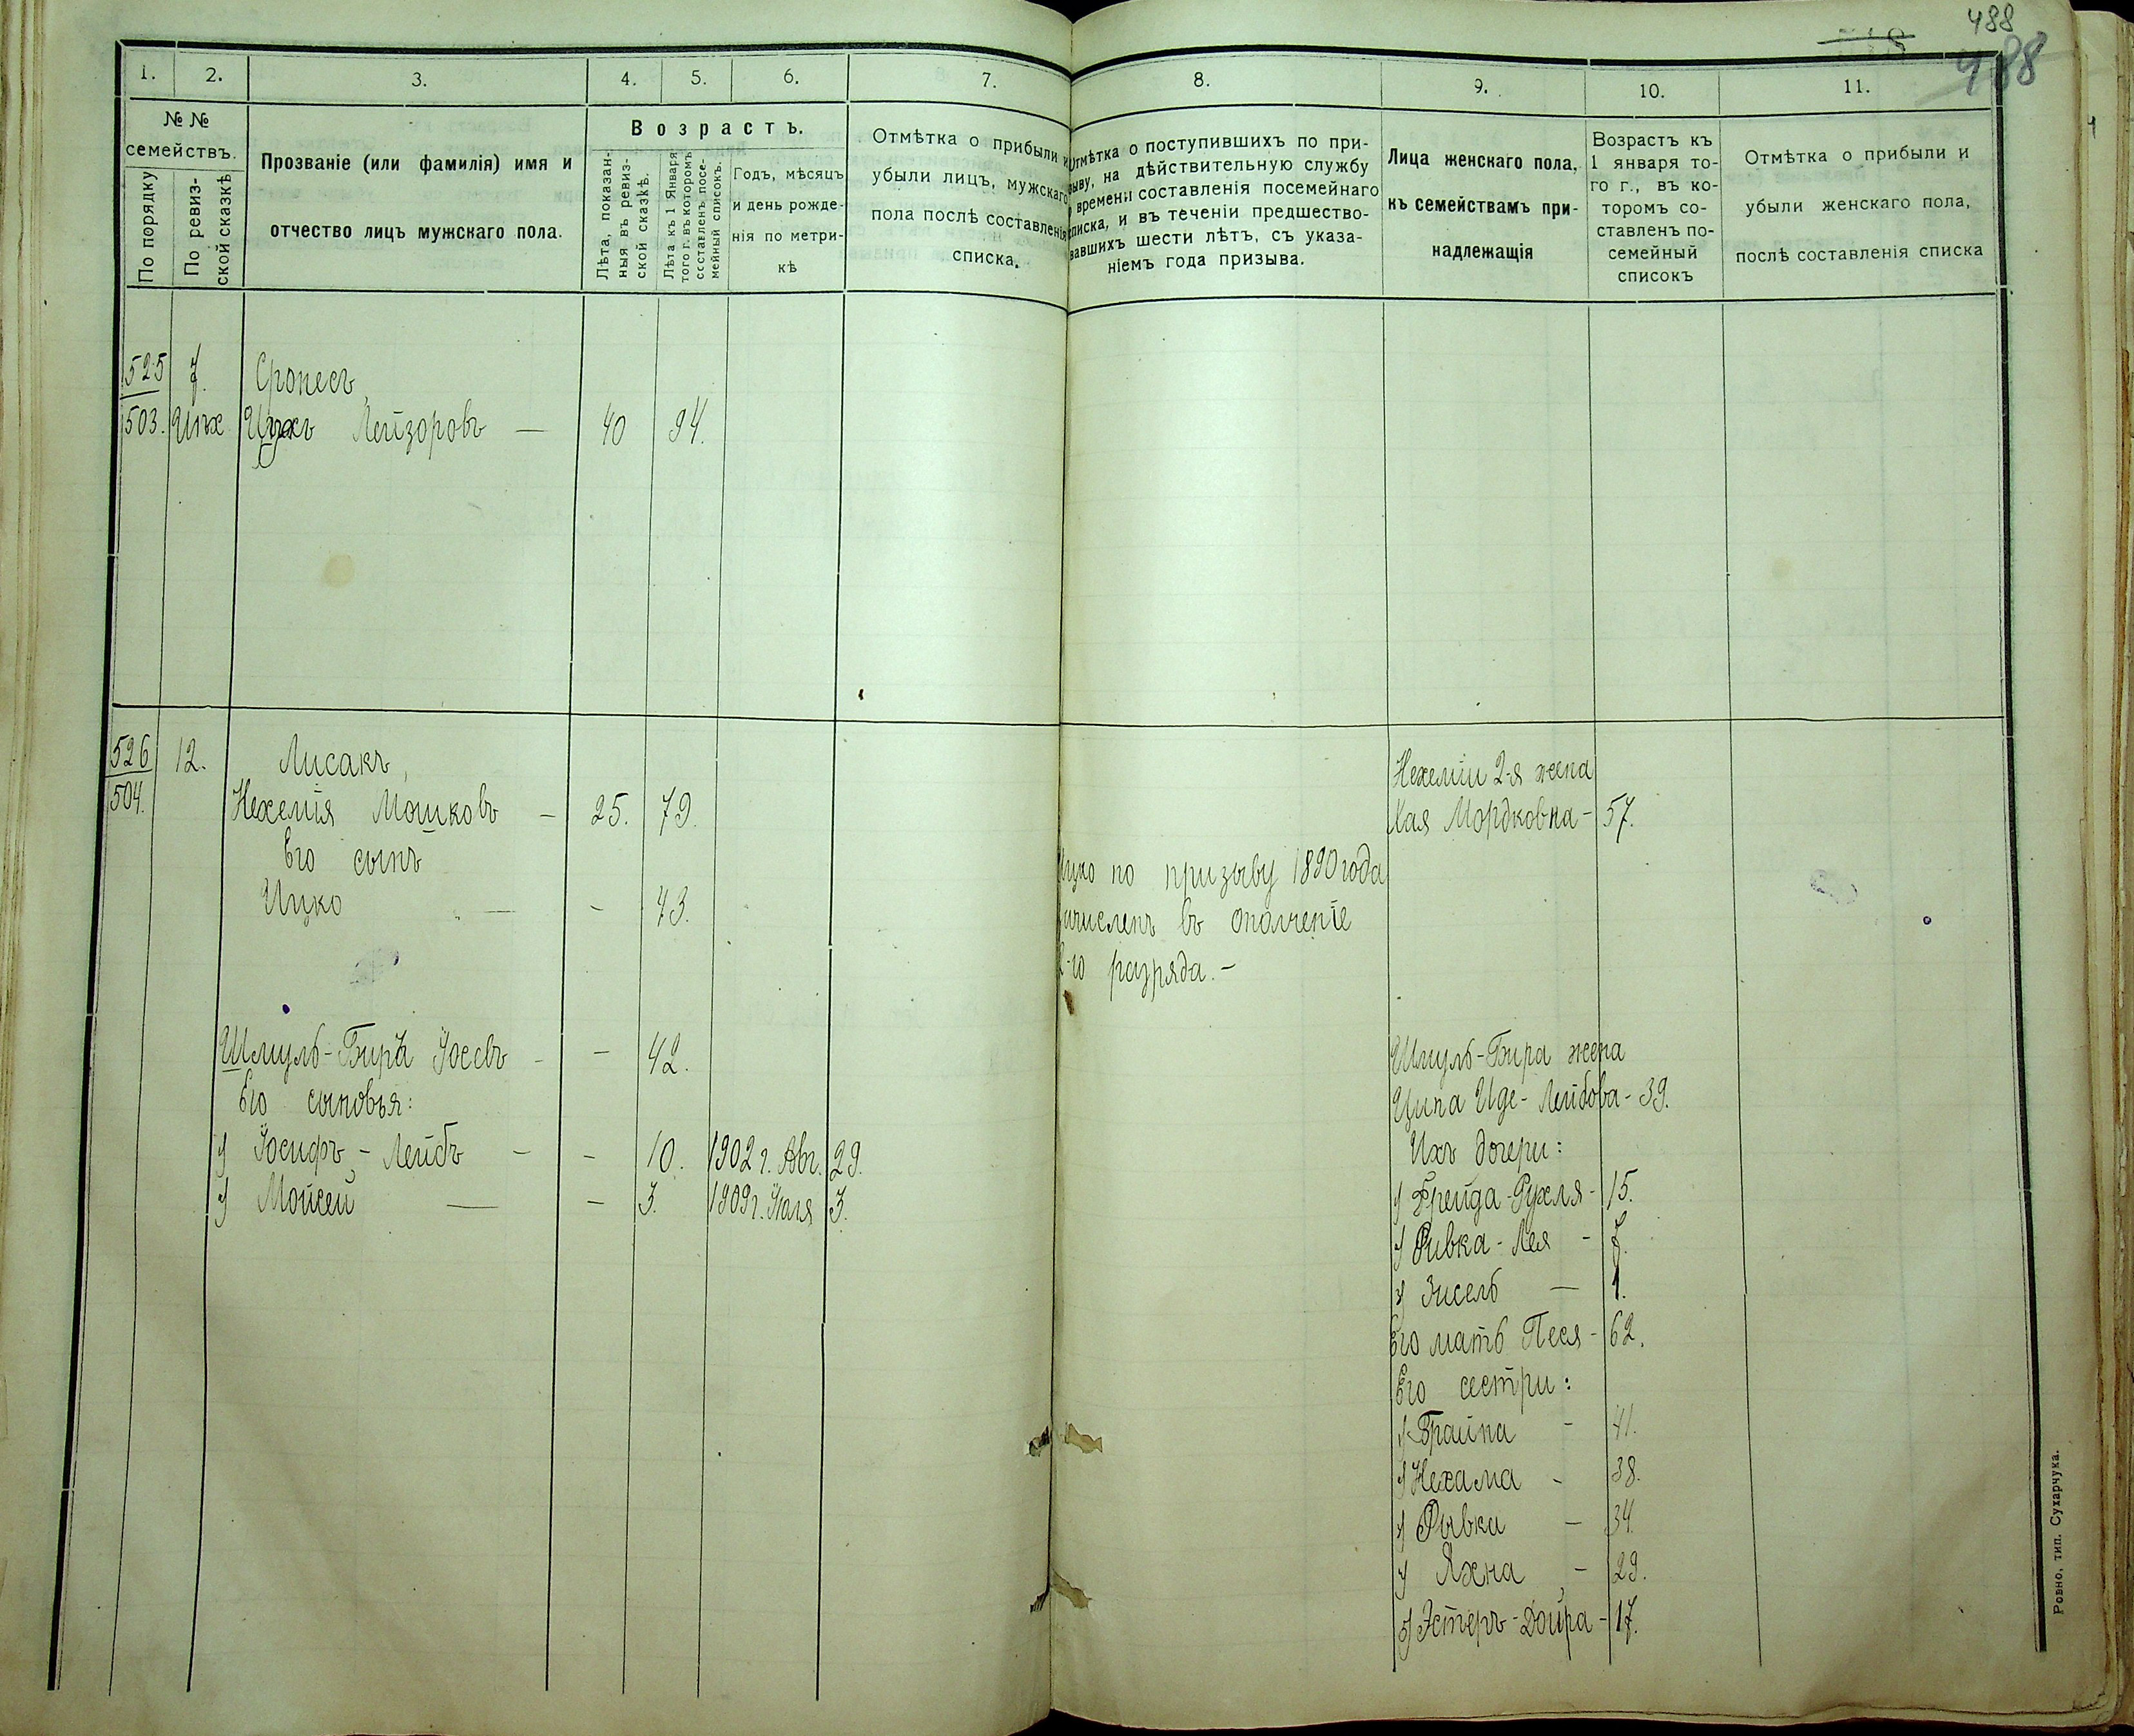 488
488
1. 2. 3. 4. 5. 6. 7. 8. 9. 10. 11.
№ №
семействъ.
По порядку
По ревиз-
ской сказкѣ
Прозваніе (или фамилія) имя и
отчество лицъ мужскаго пола.
Возрастъ.
Лѣта, показан-
ныя въ ревиз-
ской сказкѣ.
Лѣта къ 1 Января
того г. въ которомъ
составленъ посе-
мейный списокъ.
Годъ, мѣсяцъ
и день рожде-
нія по метри-
кѣ
Отмѣтка о прибыли и
убыли лицъ, мужскаго
пола послѣ составленія
списка.
Отмѣтка о поступившихъ по при-
зыву, на дѣйствительную службу
времени составленія посемейнаго
списка, и въ теченіи предшество-
вавшихъ шести лѣтъ, съ указа-
ніемъ года призыва.
Лица женскаго пола,
къ семействамъ при-
надлежащія
Возрастъ къ
1 января то-
го г., въ ко-
торомъ со-
ставленъ по-
семейный
списокъ
Отмѣтка о прибыли и
убыли женскаго пола,
послѣ составленія списка
525 7. Сропесъ
503. Лейзоровъ — 40 94.
526 12. Лисакъ,
504. Нехемія Мошковъ — 25. 79.
Его сынъ
Ицко — - 43.
Ицко по призыву 1890 года
зачисленъ въ ополченіе
2-го разряда. -
Нехеміи 2-я жена
Хая Мордковна - 57.
Шмуль-Бира Іосевъ - - 42.
Его сыновья:
1) Іосифъ-Лейбъ - - 10. 1902 г. Авг. 29.
2) Мойсей — - 3. 1909 г. Іюля 3.
Шмуль-Бира жена
Ципа Иде-Лейбова - 39.
Ихъ дочери:
1) Фрейда-Рухля - 15.
2) Ривка-Лея - 7.
3) Зисель — 1.
Его мать Песя - 62.
Его сестри:
1) Брайна - 41.
2) Нехама - 38.
3) Рывка - 34.
4) Яхна - 29.
5) Эстеръ-Двойра - 17.
Ровно, тип. Сухарчука.